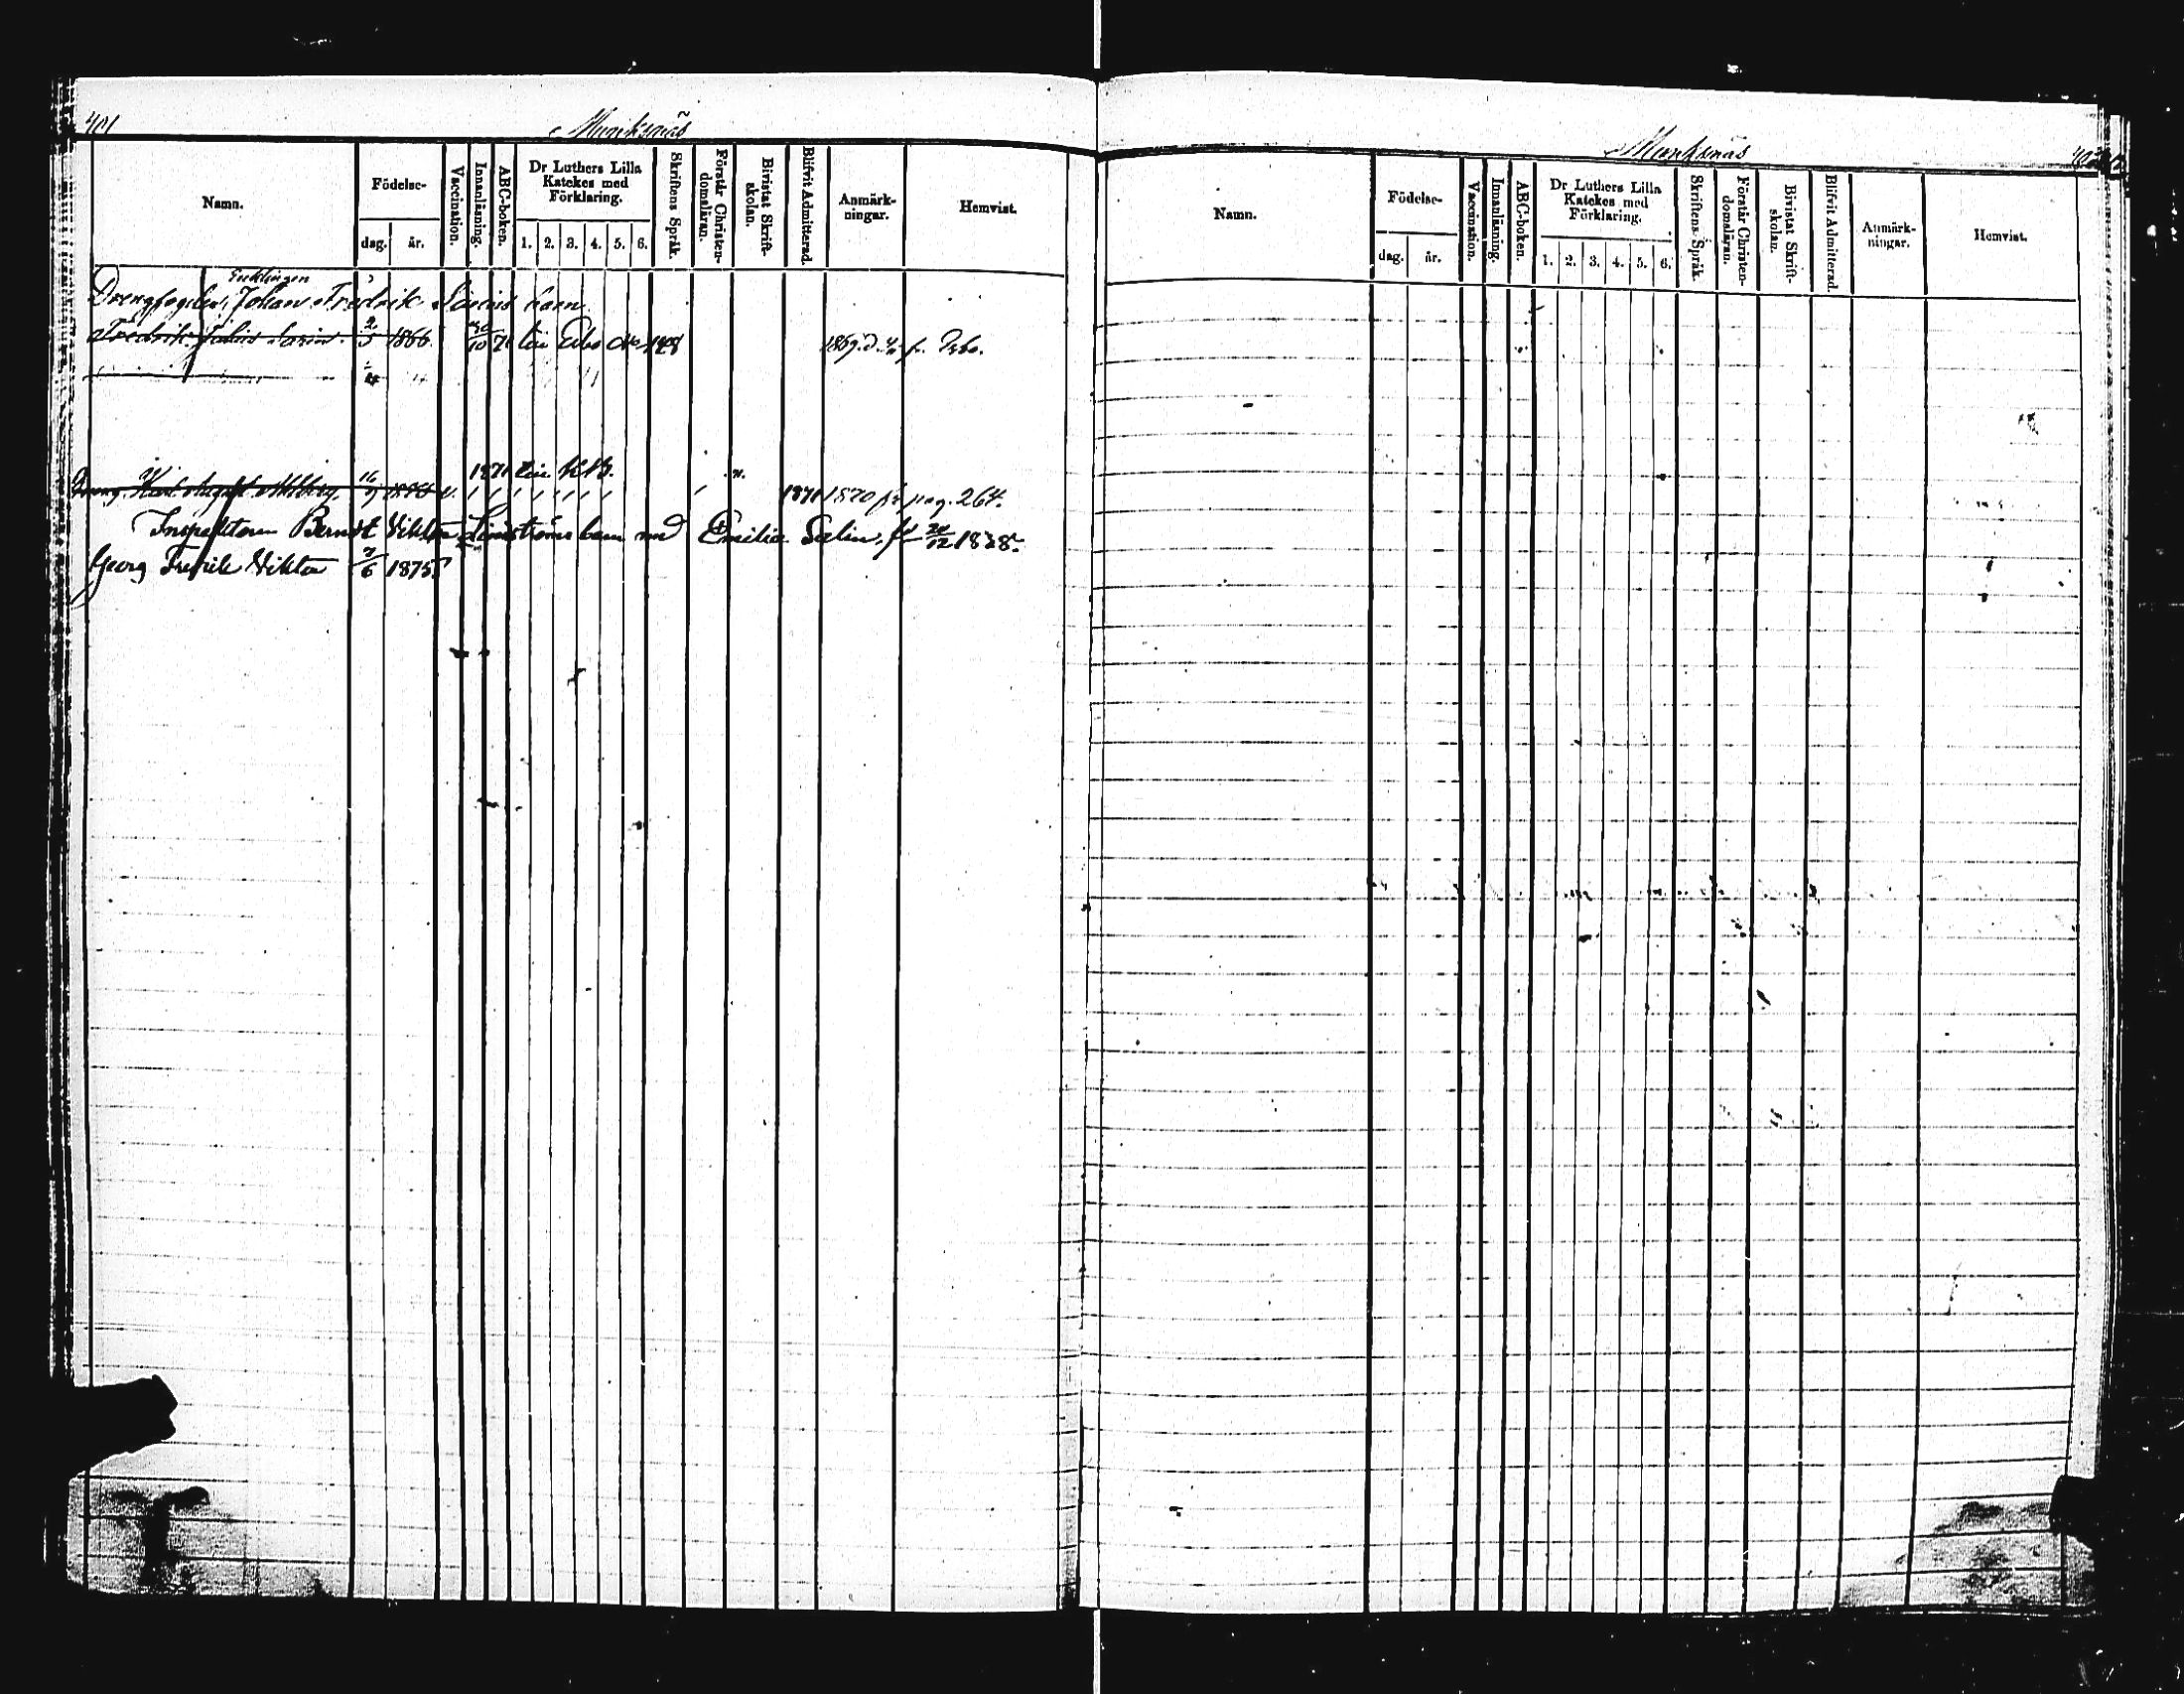 401
Munksnäs
Namn. Födelse- dag. år. Vaccination. Innanläsning. ABC-boken. Dr Luthers Lilla Katekes med Förklaring. 1. 2. 3. 4. 5. 6. Skriftens Språk. Förstår Christendomsläran. Bivistat Skriftskolan. Blifvit Admitterad. Anmärkningar. Hemvist.
Enklingen
Drengfogden, Johan Fredrik Sarins barn
Fredrik Julius Sarin. 2/3 1866. 10 71 1869 fr. Esbo.
1871
Dreng Karl August Ahlberg, 16 v. 1871 1870 fr pag. 264.
Inspektoren Berndt Viktor Lindströms barn med Emilia Salin, f. 20/12 1838.
Georg Fredrik Viktor 7/6 1875
Munksnäs
402
Namn. Födelse- dag. år. Vaccination. Innanläsning. ABC-boken. Dr Luthers Lilla Katekes med Förklaring. 1. 2. 3. 4. 5. 6. Skriftens Språk. Förstår Christendomsläran. Bivistat Skriftskolan. Blifvit Admitterad. Anmärkningar. Hemvist.